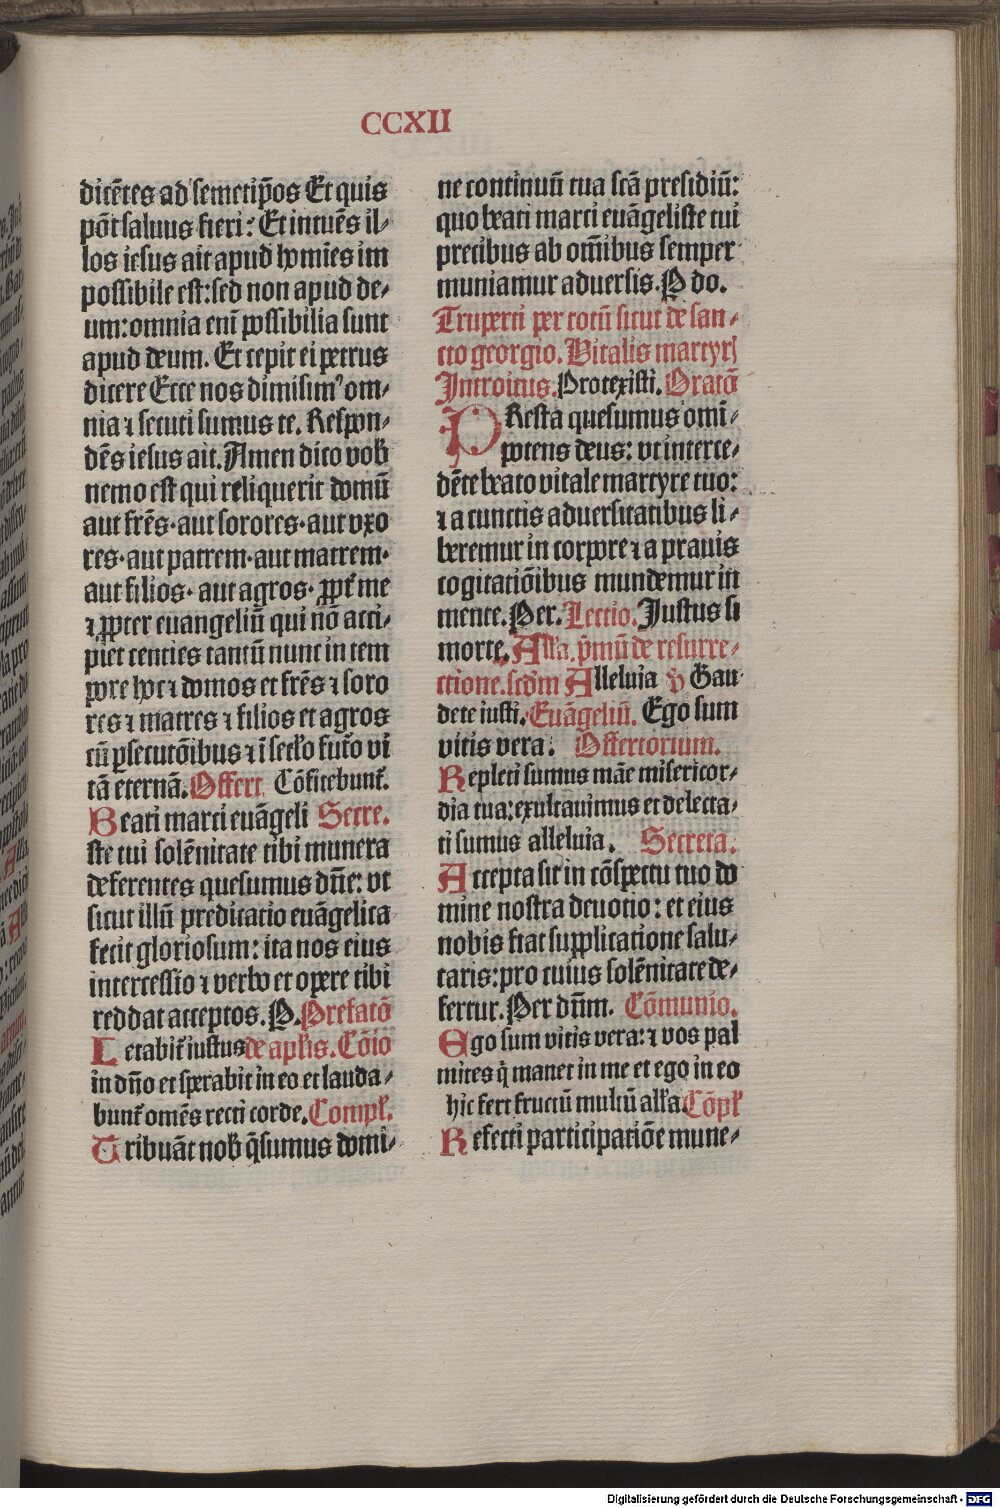 CCXII
dicētes ad semetip̄os Et quis
pōt saluus fieri? Et intuēs il-
los iesus ait apud homīes im
possibile est: sed non apud de-
um: omnia enī possibilia sunt
apud deum. Et cepit ei petrus
dicere Ecce nos dimisimꝰ om-
nia ⁊ secuti sumus te. Respon-
dēs iesus ait. Amen dico vob̄
nemo est qui reliquerit domū
aut frēs· aut sorores· aut vxo
res· aut patrem· aut matrem·
aut filios· aut agros· ꝓpt̄ me
⁊ ꝓpter euangeliū qui nō acci-
piet centies tantū nunc in tem
pore hoc ⁊ domos et frēs ⁊ soro
res ⁊ matres ⁊ filios et agros
cū ꝑsecutōibus ⁊ ī seclō futo̅ vi
tā eternā. Offert. Cōfitebunt̄.
Beati marci euāgeli Secre.
ste tui solēnitate tibi munera
deferentes quesumus dn̄e: vt
sicut illū predicatio euāgelica
fecit gloriosum: ita nos eius
intercessio ⁊ verbo et opere tibi
reddat acceptos. P. Prefatō
Letabit̄ iustus de apl̄is. Cōio
in dn̄o et sperabit in eo et lauda-
bunt̄ omēs recti corde. Compl̄.
Tribuāt nob̄ q̄sumus domi-
ne continuū tua scā presidiū:
quo beati marci euāgeliste tui
precibus ab om̄ibus semper
muniamur aduersis. P do.
Truperti per totū sicut de san-
cto georgio. Vitalis martyrꝭ
Introitus. Protexisti. Oratō
PResta quesumus omī-
potens deus: vt interce-
dēte beato vitale martyre tuo:
⁊ a cunctis aduersitatibus li-
beremur in corpore ⁊ a prauis
cogitatiōibus mundemur in
mente. Per. Lectio. Justus si
morte. Alla̅. p̄mū de resurre-
ctione. scdm̄ Alleluia ℣ Gau
dete iusti. Euāgeliū. Ego sum
vitis vera. Offertorium.
Repleti sumus māe misericor-
dia tua: exultauimus et delecta-
ti sumus alleluia. Secreta.
Accepta sit in cōspectu tuo do
mine nostra deuotio: et eius
nobis fiat supplicatione salu-
taris: pro cuius solēnitate de-
fertur. Per dn̄m. Cōmunio.
Ego sum vitis vera: ⁊ vos pal
mites q̄ manet in me et ego in eo
hic fert fructū multū all̄a. Cōpl̄
Refecti participatiōe mune-
Digitalisierung gefördert durch die Deutsche Forschungsgemeinschaft - DFG